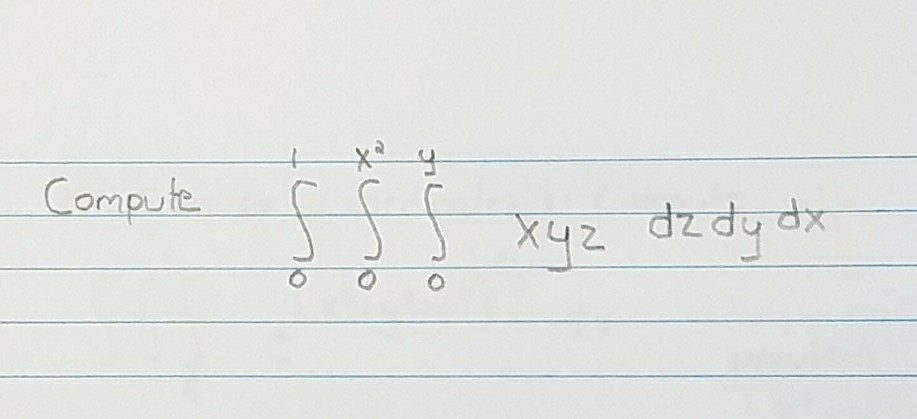 Compute ∫₀¹ ∫₀^{x²} ∫₀^{y} xyz dz dy dx